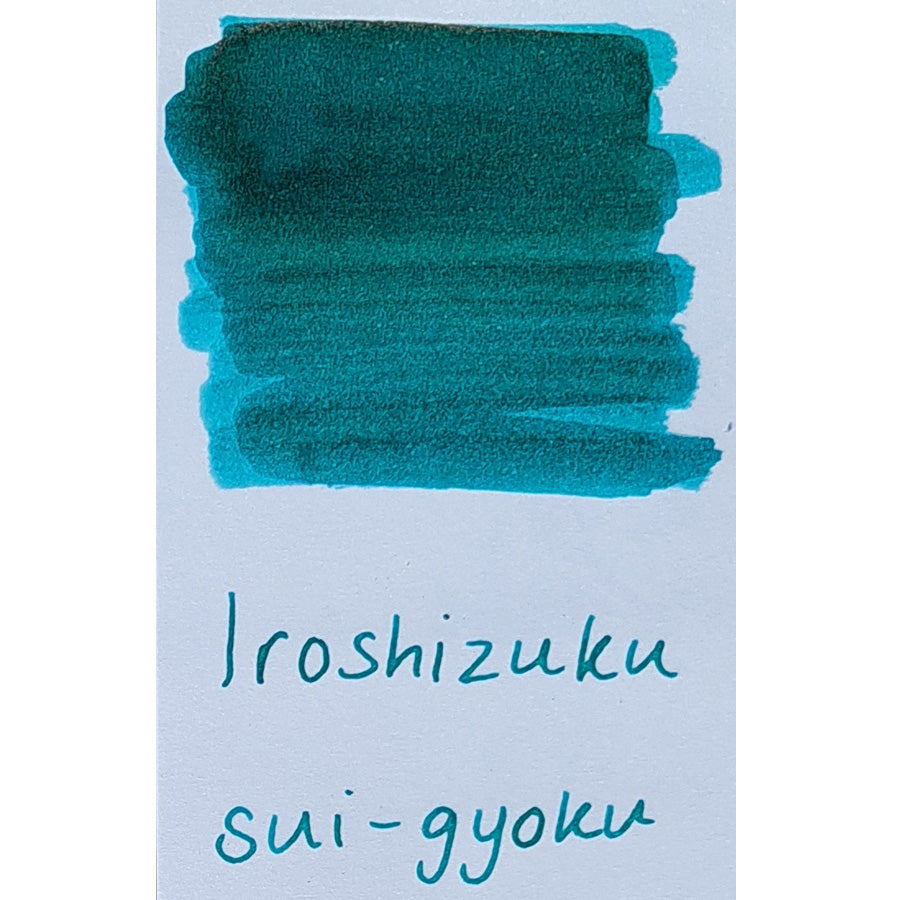 Iroshizuku
sui-gyoku